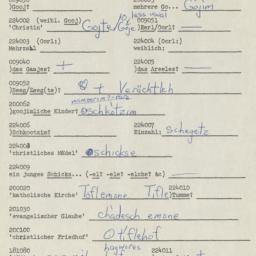 )Gooj? mehrere Go... Gojim
224002 (weibl. Gooj) 009051
'Christin' Gojte/Goje )Earl/Oorl:
224003 (Oorl:) 224004 (Oorl:)
Mehrzahl weiblich:
009040 009051
)das Gaajes? + )das Areeles? —
009052
)Seeg/Seeg(te)? + Verächtlich
200062
)goojisliche Kinder? Schkotzim
224006 224007
)Schkootzim? Einzahl: Schegetz
224008
'christliches Mädel' schickse
224009
ein junges Schicks... (-el? -ele? -elche? &c) —
200020 224010
'katholische Kirche' Toflemone Tifle Tumme?
201030
'evangelischer Glaube' chadesch emone
200100
'christlicher Friedhof' Otflehof
181080 224011